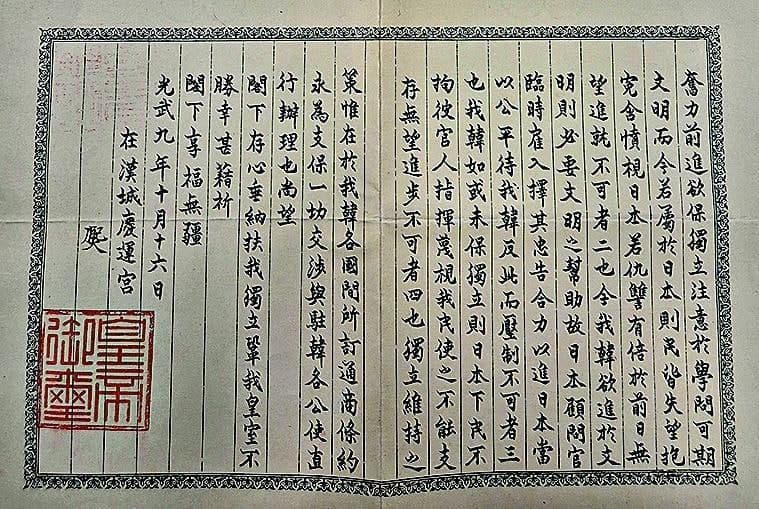 奮力前進欲保獨立注意於學問可期
文明而今若屬於日本則民皆失望抱
冤含憤視日本若仇讐有倍於前日無
望進就不可者二也今我韓欲進於文
明則必要文明之幫助故日本顧問官
臨時雇入擇其忠告合力以進日本當
以公平待我韓反此而壓制不可者三
也我韓如或未保獨立則日本下民不
拘彼官人指揮蔑視我民使之不能支
存無望進步不可者四也獨立維持之
策惟在於我韓各國間所訂通商條約
永為支保一切交涉與駐韓各公使直
行辦理也尚望
閣下存心垂納扶我獨立鞏我皇室不
勝幸甚藉祈
閣下享福無疆
光武九年十月十六日
在漢城慶運宮
㷩
皇帝御璽